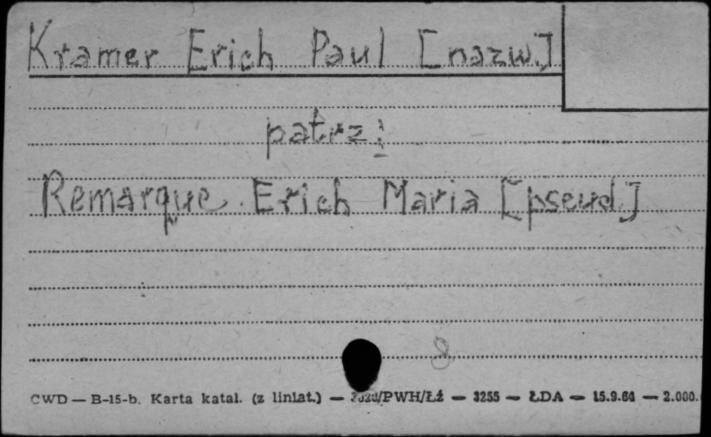 Kramer Erich Paul [nazw.]
patrz:
Remarque Erich Maria [pseud.]
8
CWD — B-15-b. Karta katal. (z liniat.) — /PWH/Łź — 3255 — ŁDA — 15.9.64 — 2.000.